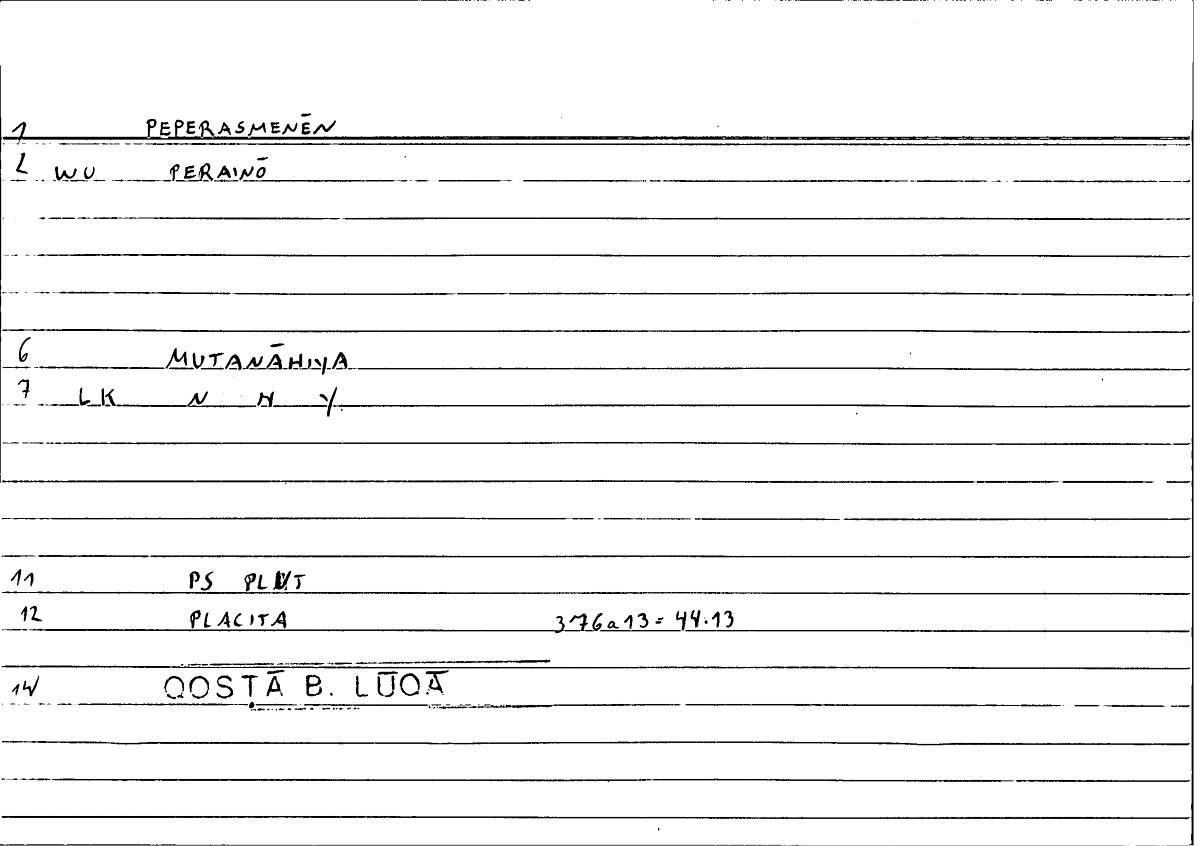 1 PEPERASMENĒN
2 WU PERAINŌ
6 MUTANĀHIYA
7 LK N H Y
11 PS PLUT
12 PLACITA 376a13 = 44.13
14 QOSṬĀ B. LŪQĀ